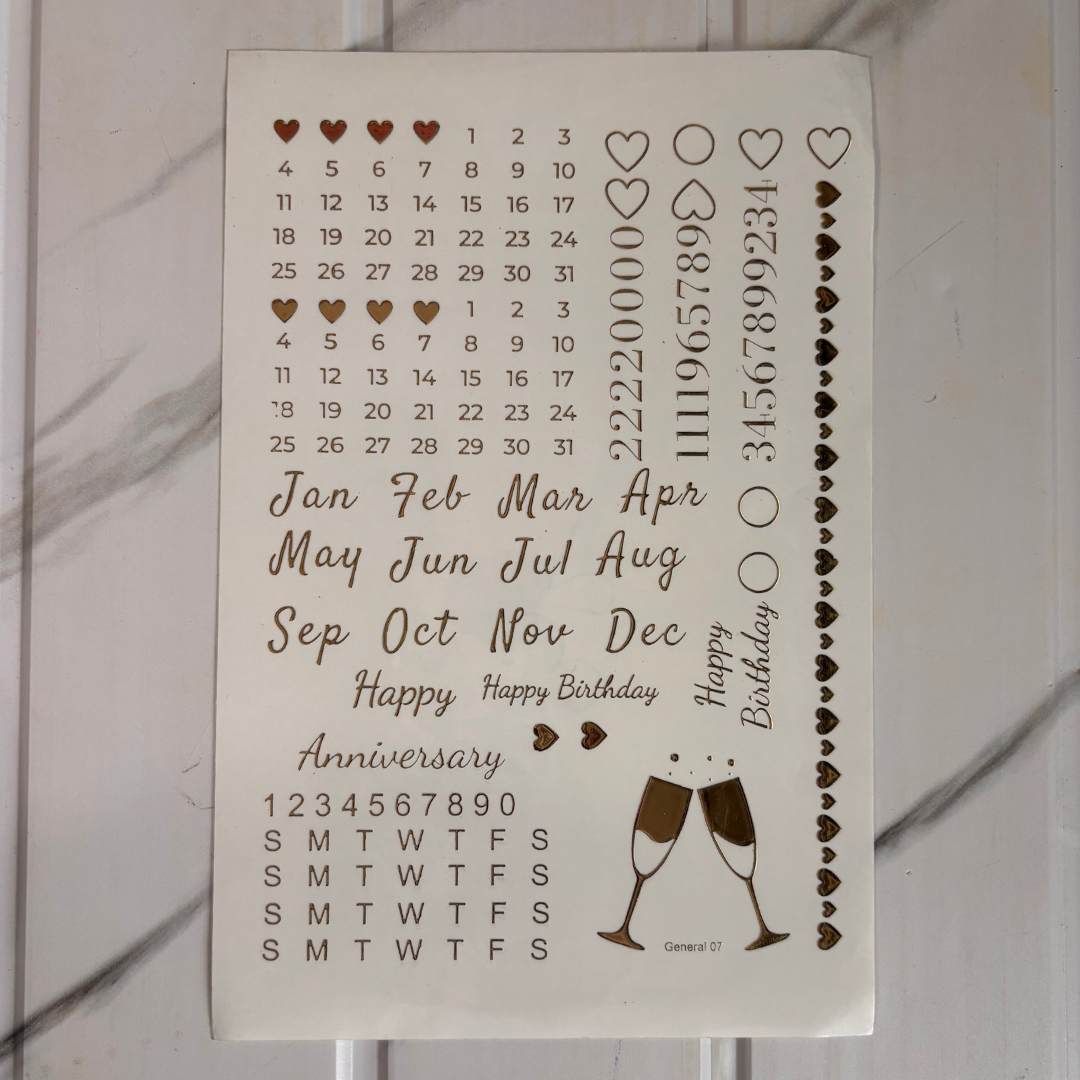 1 2 3
4 5 6 7 8 9 10
11 12 13 14 15 16 17
18 19 20 21 22 23 24
25 26 27 28 29 30 31
1 2 3
4 5 6 7 8 9 10
11 12 13 14 15 16 17
18 19 20 21 22 23 24
25 26 27 28 29 30 31
22220000
1111965789
34567899234
Jan Feb Mar Apr
May Jun Jul Aug
Sep Oct Nov Dec
Happy
Happy Birthday
Happy
Birthday
Anniversary
1 2 3 4 5 6 7 8 9 0
S M T W T F S
S M T W T F S
S M T W T F S
S M T W T F S
General 07